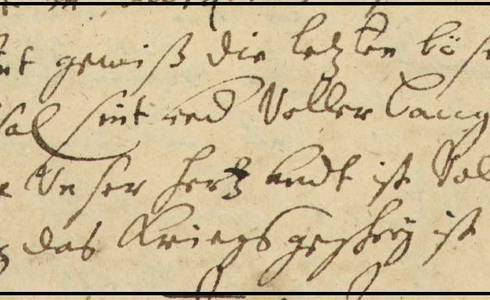 gewiß die letzten böse
sint und Voller Lang
Unser hertz undt ist Vol
das Kriegs geschrey ist